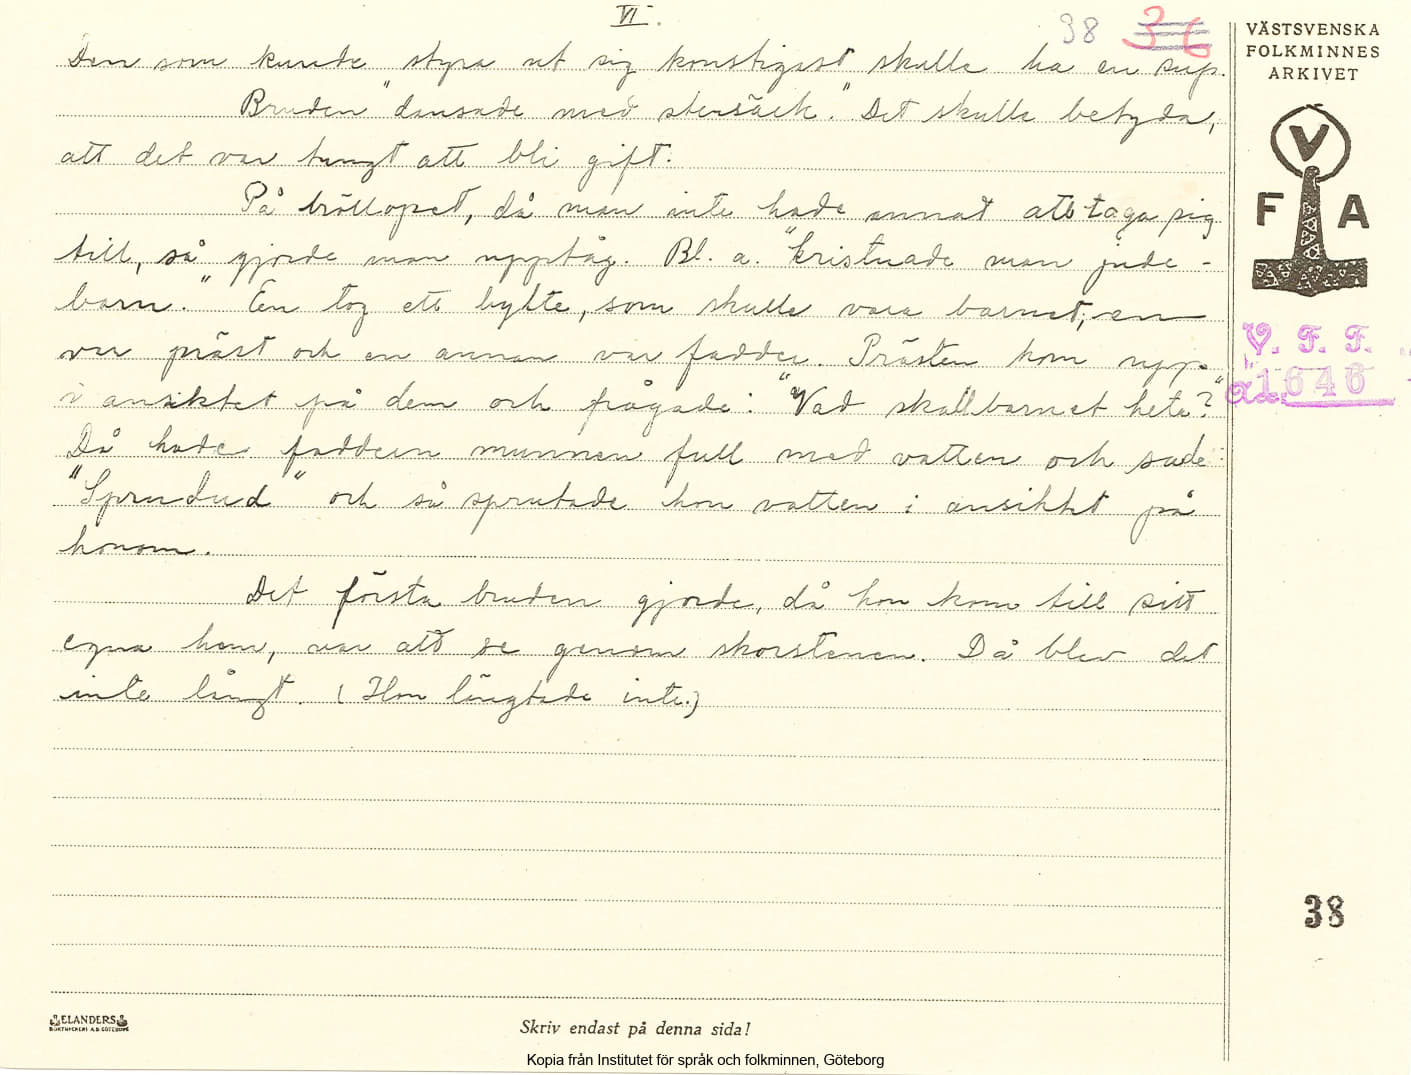 VI.
38 36
Den som kunde styra ut sig konstigast skulle ha en sup.
Bruden "dansade med stensäck." Det skulle betyda,
att det var tungt att bli gift.
På bröllopet, då man inte hade annat att taga sig
till, så gjorde man upptåg. Bl. a. "kristnade man jude-
barn." En tog ett bylte, som skulle vara barnet, en
var präst och en annan var fadder. Prästen kom upp
i ansiktet på dem och frågade: "Vad skall barnet heta?"
Då hade faddern munnen full med vatten och sade:
"Sprudud" och så sprutade hon vatten i ansiktet på
honom.
Det första bruden gjorde, då hon kom till sitt
egna hem, var att se genom skorstenen. Då blev det
inte långt. (Hon längtade inte.)
VÄSTSVENSKA
FOLKMINNES
ARKIVET
V
F A
V. F. F.
1646
38
ELANDERS
BOKTRYCKERI A.B. GÖTEBORG
Skriv endast på denna sida!
Kopia från Institutet för språk och folkminnen, Göteborg